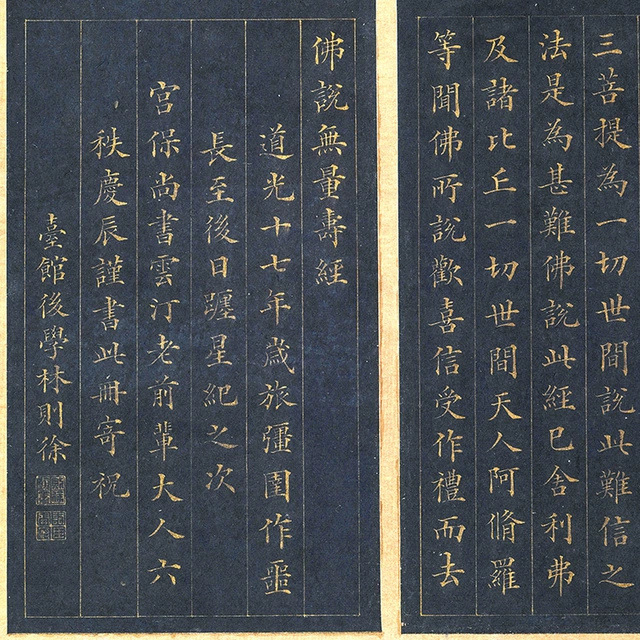 三菩提為一切世間說此難信之
法是為甚難佛說此經已舍利弗
及諸比丘一切世間天人阿脩羅
等聞佛所說歡喜信受作禮而去
佛說無量壽經
道光十七年歲旅彊圉作噩
長至後日躔星紀之次
宮保尚書雲汀老前輩大人六
秩慶辰謹書此冊寄祝
臺館後學林則徐